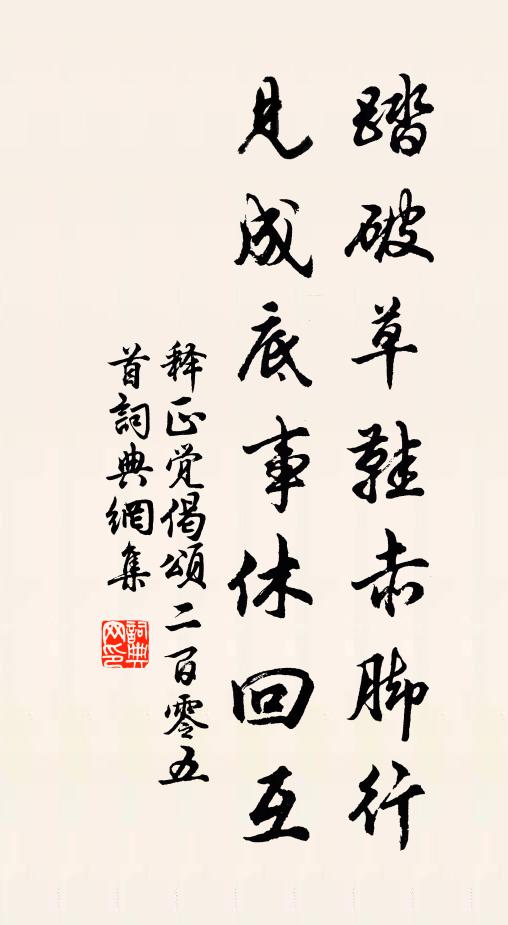 踏破草鞋赤脚行
見成底事休回互
释正覚偈頌二百零五
首詞典網集
詞典网印